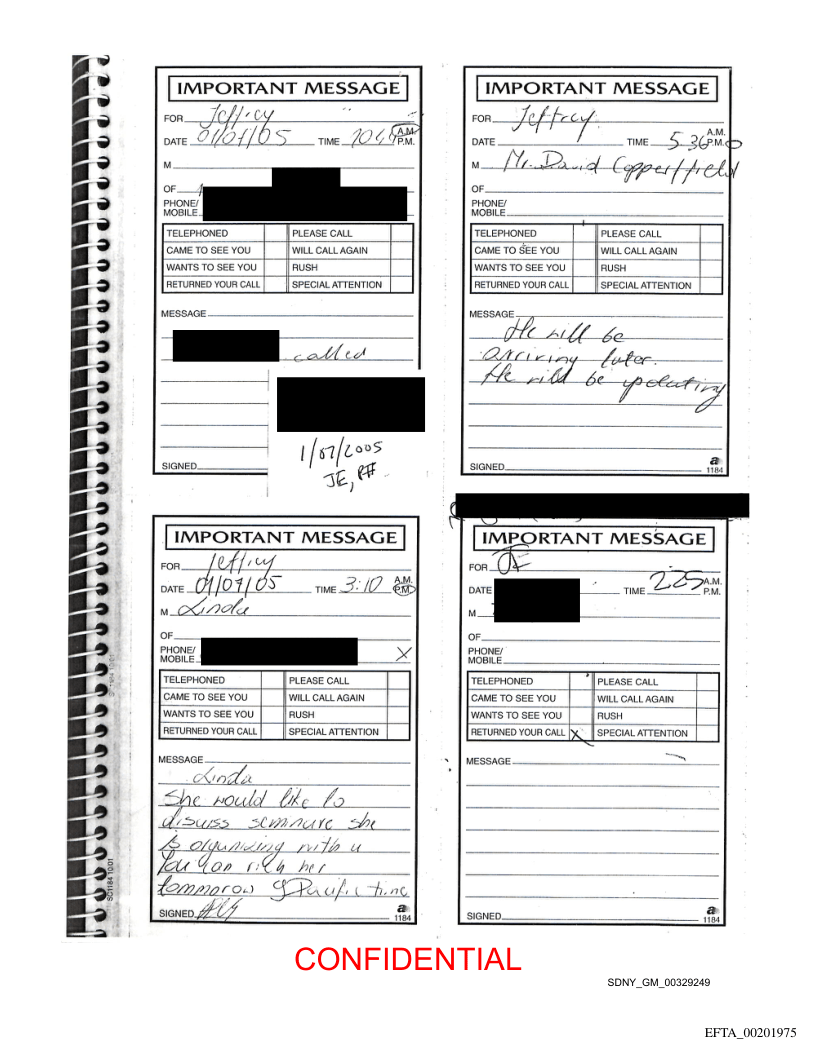 IMPORTANT MESSAGE
FOR Jeffrey
DATE 01/07/05 TIME A.M.
P.M.
M
OF
PHONE/
MOBILE
TELEPHONED PLEASE CALL
CAME TO SEE YOU WILL CALL AGAIN
WANTS TO SEE YOU RUSH
RETURNED YOUR CALL SPECIAL ATTENTION
MESSAGE
called
SIGNED
1/07/2005
JE,
IMPORTANT MESSAGE
FOR Jeffrey
DATE TIME 5 36 A.M.
P.M.
M Mr. David Copperffield
OF
PHONE/
MOBILE
TELEPHONED PLEASE CALL
CAME TO SEE YOU WILL CALL AGAIN
WANTS TO SEE YOU RUSH
RETURNED YOUR CALL SPECIAL ATTENTION
MESSAGE
He will be
arriving later.
He will be updating
SIGNED
a
1184
IMPORTANT MESSAGE
FOR Jeffrey
DATE 01/07/05 TIME 3:10 A.M.
P.M.
M Linda
OF
PHONE/
MOBILE X
TELEPHONED PLEASE CALL
CAME TO SEE YOU WILL CALL AGAIN
WANTS TO SEE YOU RUSH
RETURNED YOUR CALL SPECIAL ATTENTION
MESSAGE
Linda
She would like to
disuss seminare she
is organizing with u
You can rich her
tommorow Pacific time
SIGNED
a
1184
SC1184 10-01
IMPORTANT MESSAGE
FOR JE
DATE TIME 225 A.M.
P.M.
M
OF
PHONE/
MOBILE
TELEPHONED PLEASE CALL
CAME TO SEE YOU WILL CALL AGAIN
WANTS TO SEE YOU RUSH
RETURNED YOUR CALL X SPECIAL ATTENTION
MESSAGE
SIGNED
a
1184
CONFIDENTIAL
SDNY_GM_00329249
EFTA_00201975